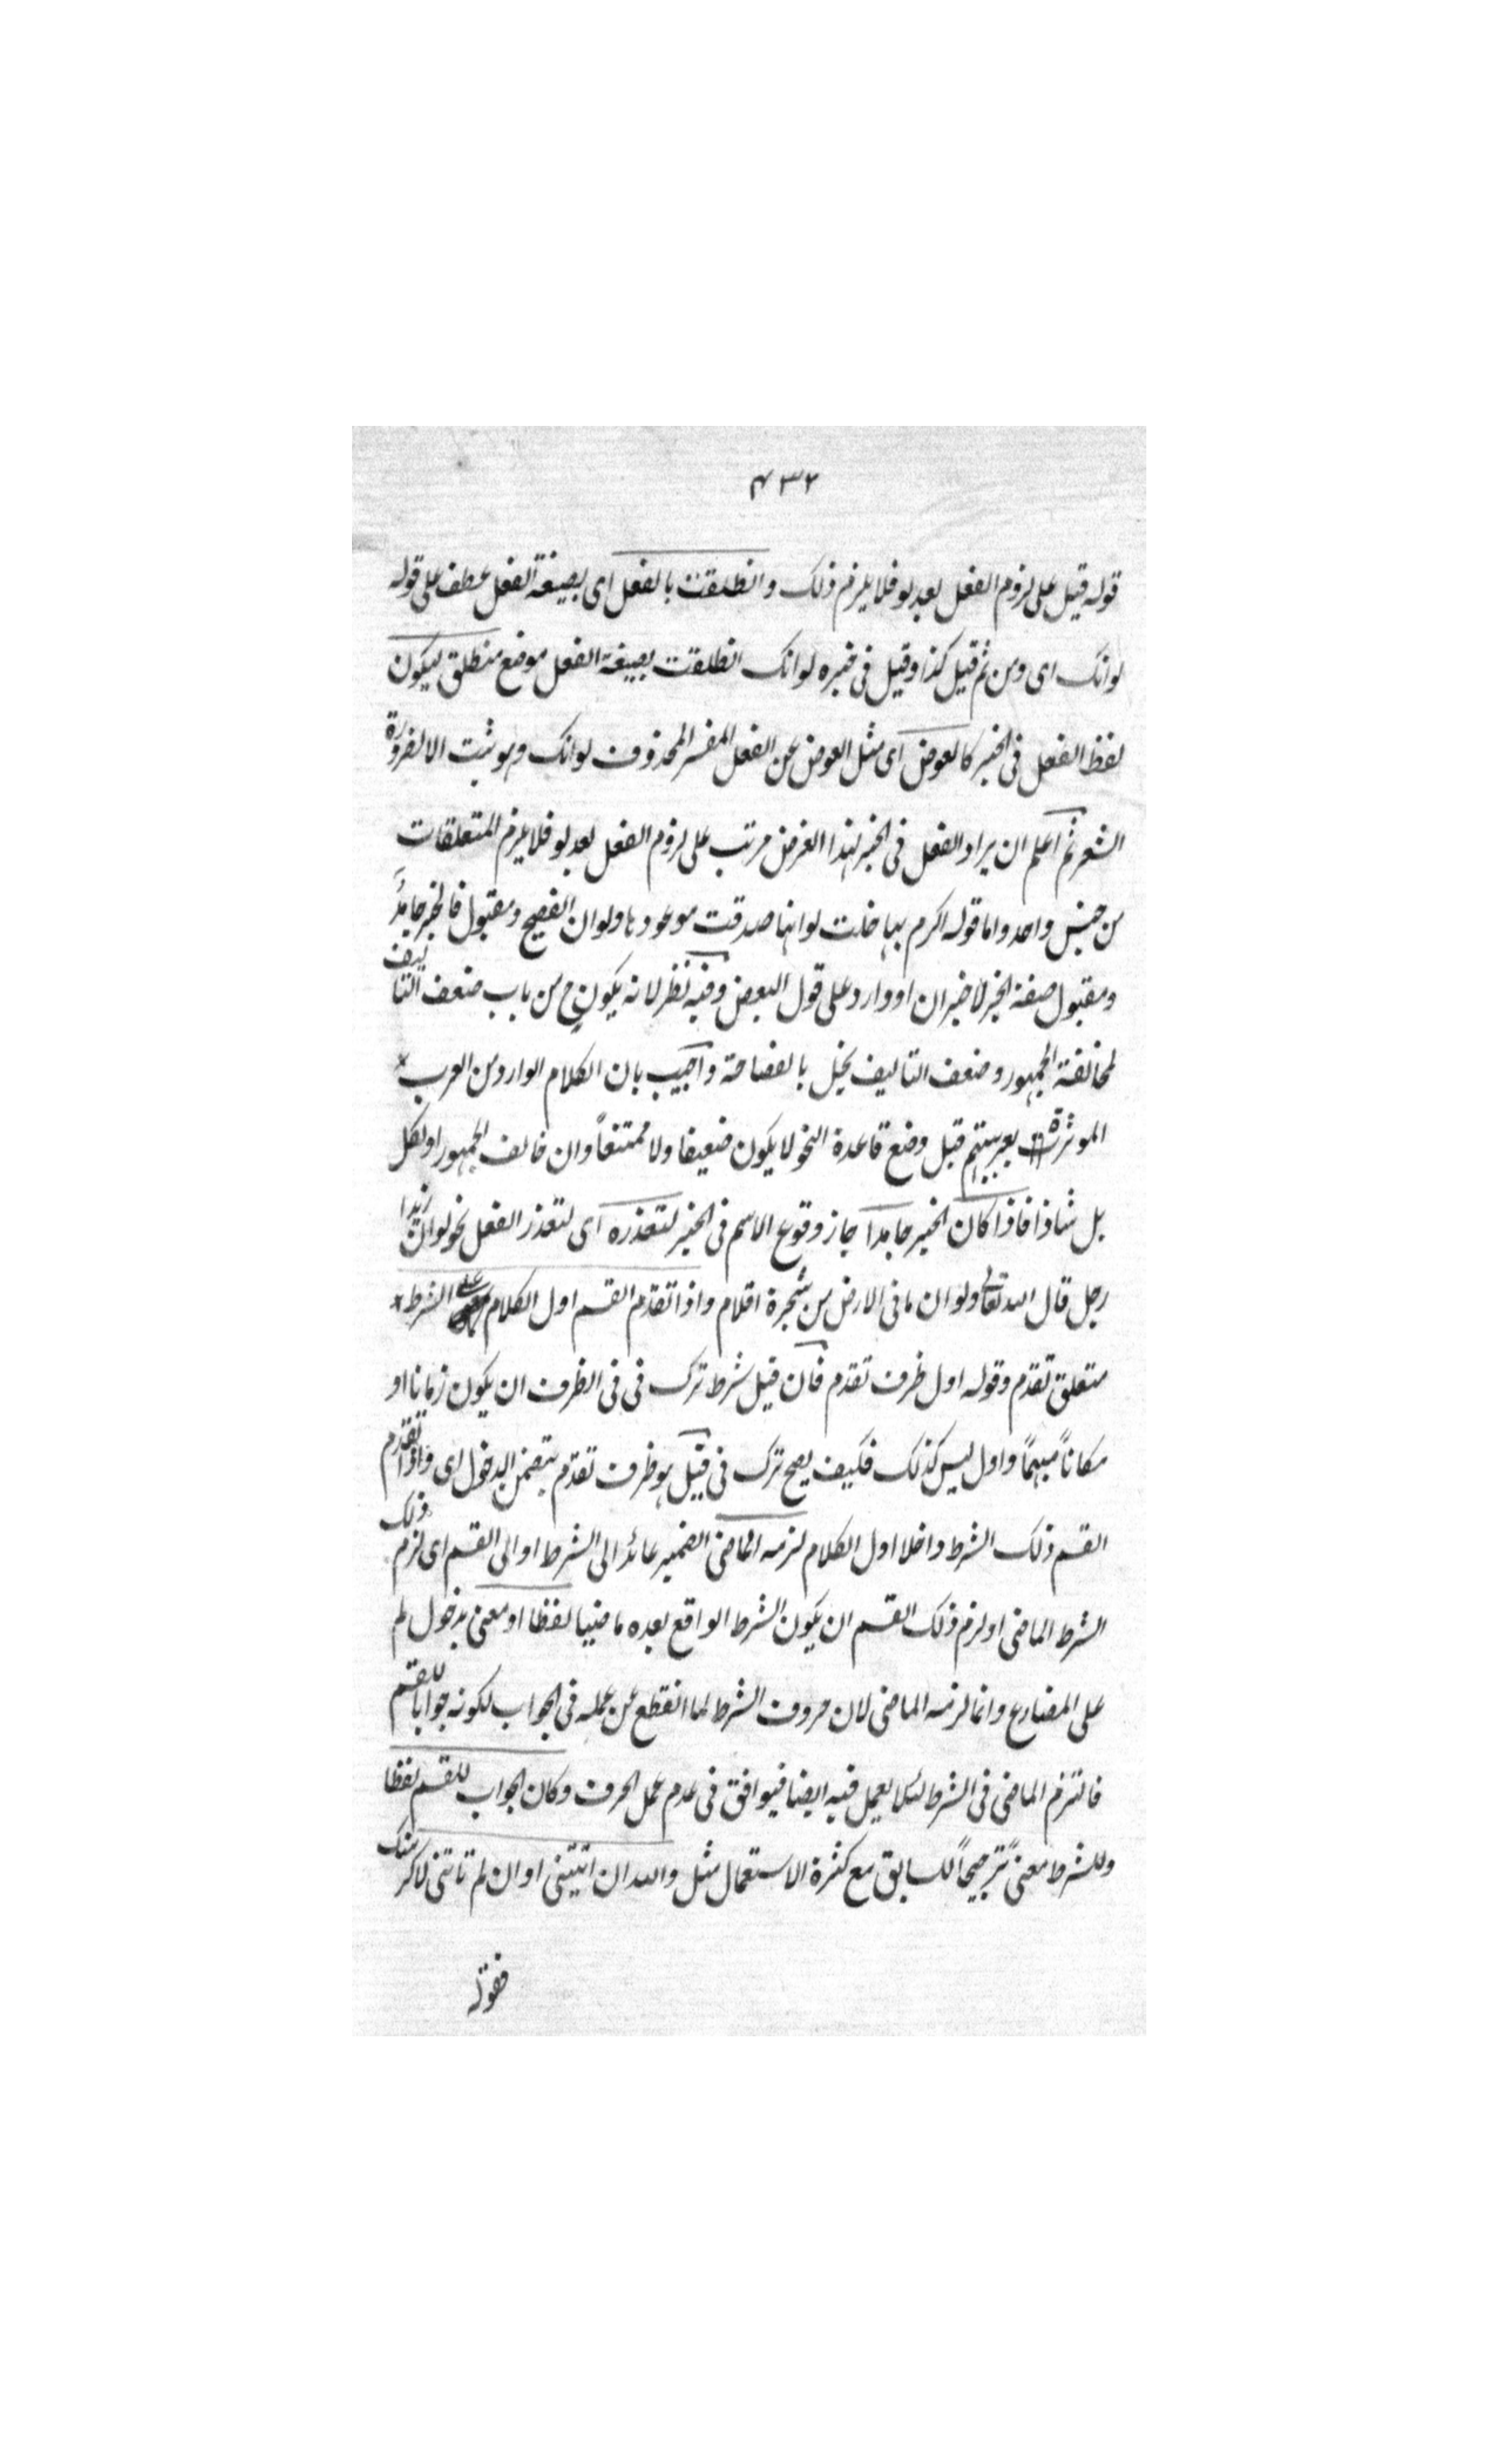 ٤٣٢
قوله قيل على لزوم الفعل بعد لو فلا يلزم ذلك وانطلقت بالفعل اى بصيغة الفعل عطف على قوله
لوانك اى ومن ثم قيل كذا وقيل فى خبره لوانك انطلقت بصيغة الفعل موضع منطلق ليكون
لفظ الفعل فى الخبر كالعوض اى مثل العوض عن الفعل المفسر المحذوف لوانك وهو ثبت الا لضرورة
الشعر ثم اعلم ان يراد الفعل فى الخبر لهذا الغرض مرتب على لزوم الفعل بعد لو فلا يلزم المتعلقات
من جنس واحد واما قوله اكرم بها خلت لوانها صدقت موعودها ولو ان الفصيح ومقبول فالخبر جامدًا
ومقبول صفة الخبر لا خبر ان او وارد على قول البعض وفيه نظر لانه يكون ح من باب ضعف التاليف
لمخالفته الجمهور وضعف التاليف يخل بالفصاحة واجيب بان الكلام الوارد من العرب
بعربيتهم قبل وضع قاعدة النحو لا يكون ضعيفا ولا ممتنعاً وان خالف الجمهور او لكل
بل شاذا فاذا كان الخبر جامدًا جاز وقوع الاسم فى الخبر لتعذره اى لتعذر الفعل نحو لو ان زيدا
رجل قال الله تعالى ولو ان ما فى الارض من شجرة اقلام واذا تقدم القسم اول الكلام على الشرط
متعلق تقدم وقوله اول ظرف تقدم فان قيل شرط ترك فى فى الظرف ان يكون زمانا او
مكاناً مبهمًا واول ليس كذلك فكيف يصح ترك فى قيل هو ظرف تقدم بتضمن الدخول اى واذا تقدم
القسم ذلك الشرط داخلا اول الكلام لزمه الماضى الضمير عائد الى الشرط او الى القسم اى لزم ذلك
الشرط الماضى او لزم ذلك القسم ان يكون الشرط الواقع بعده ماضيا لفظا او معنى بدخول لم
على المضارع وانما لزمه الماضى لان حروف الشرط لما انقطع عن عمله فى الجواب لكونه جوابا للقسم
فالتزم الماضى فى الشرط لئلا يعمل فيه ايضا فيوافق فى عدم عمل الحرف وكان الجواب للقسم لفظا
وللشرط معنىً ترجيحاً لسابق مع كثرة الاستعمال مثل والله ان اتيتنى او ان لم تاتنى لاكرمنك
فقوله